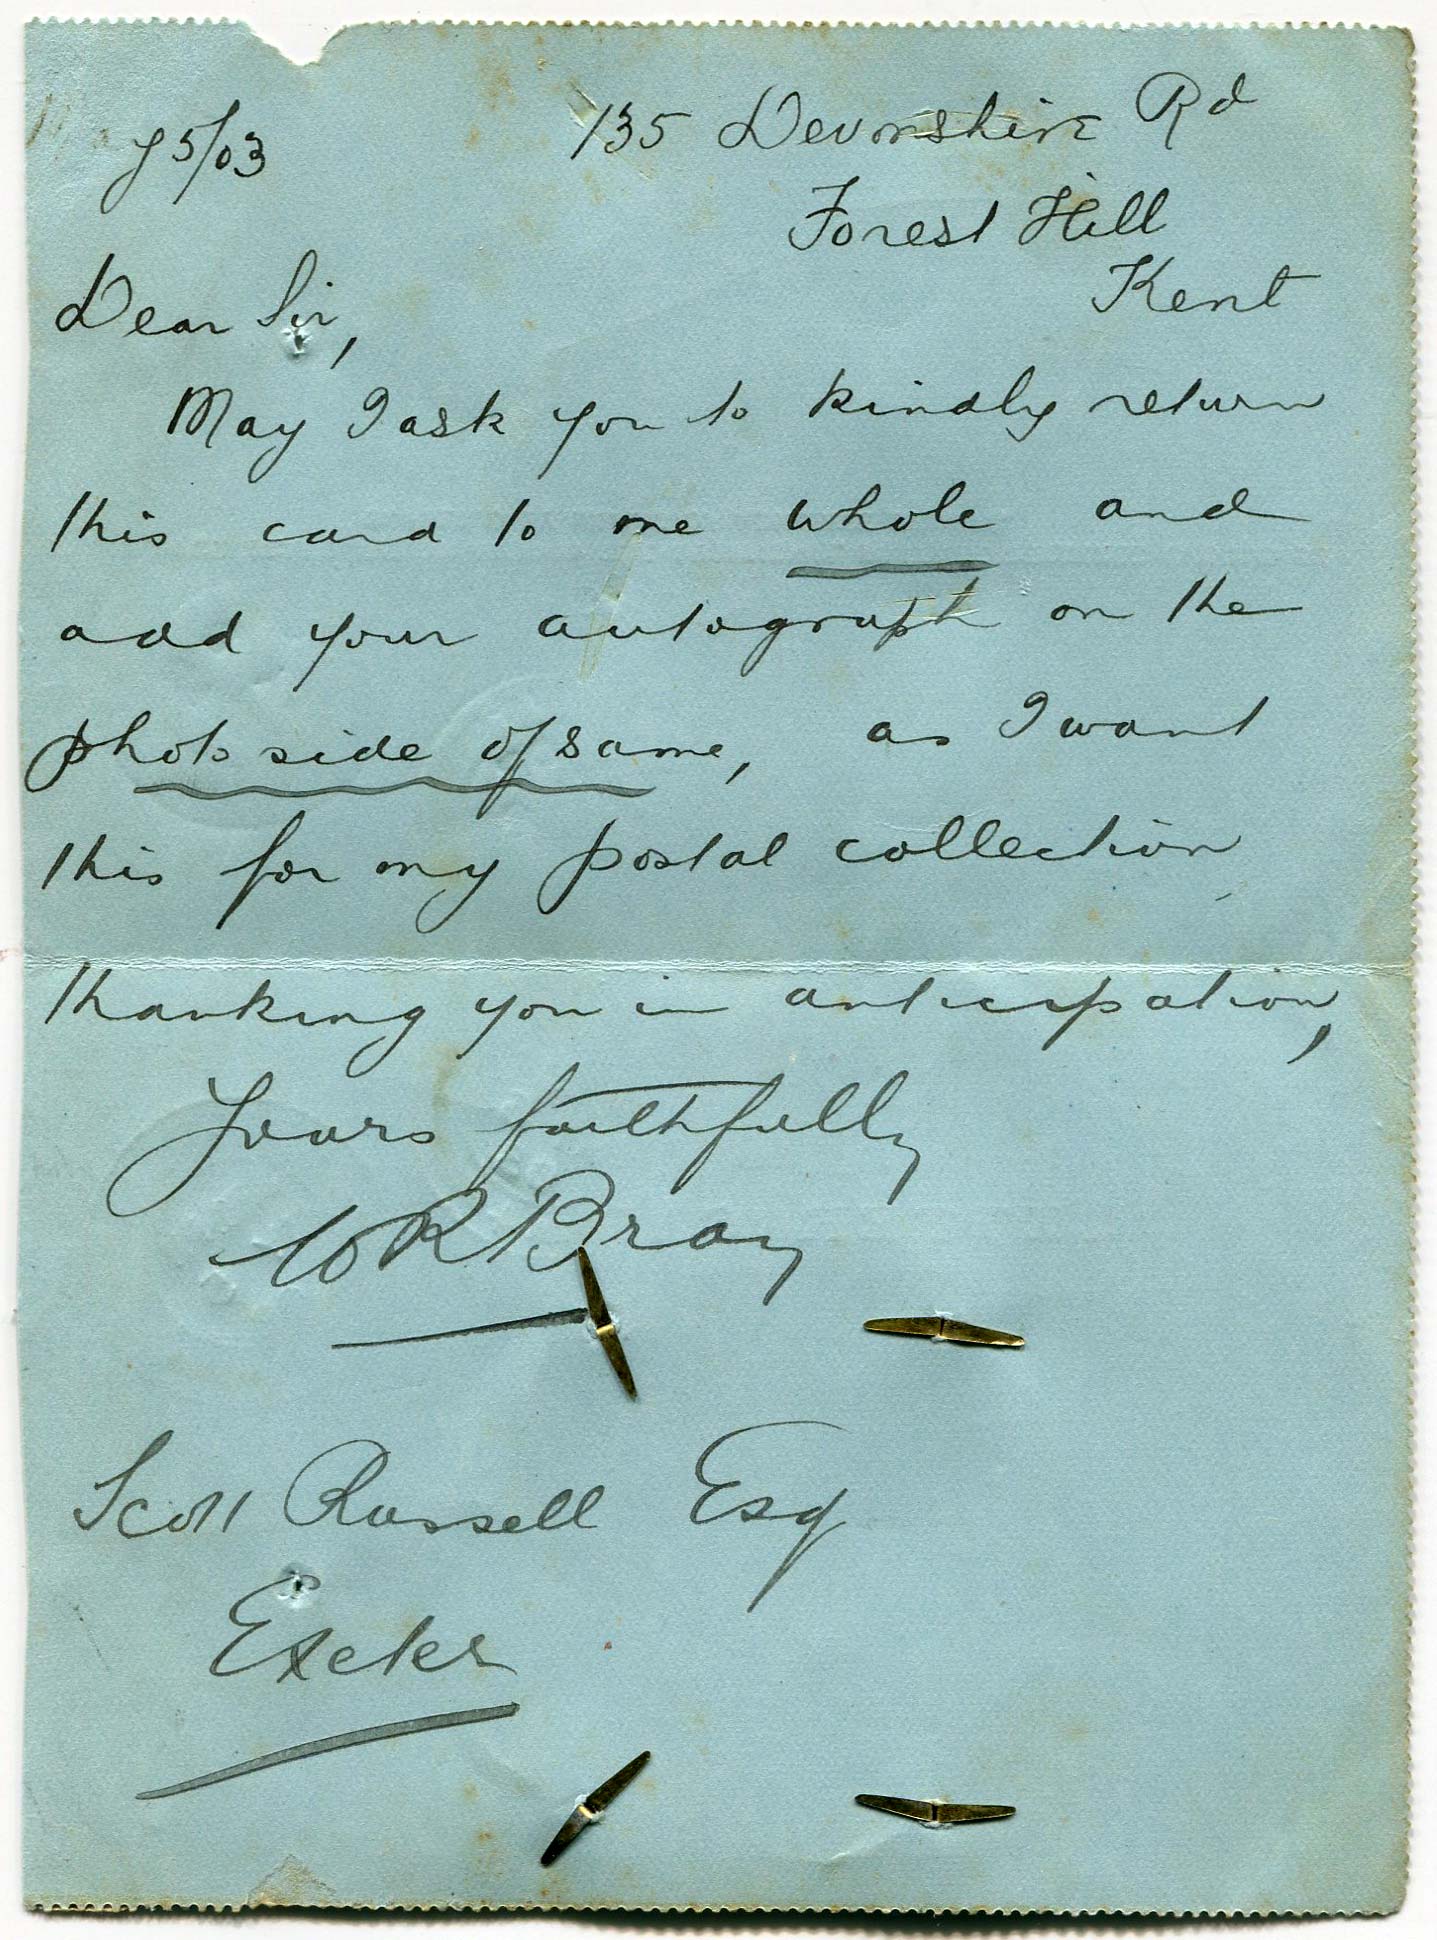 135 Devonshire Rd
5/03
Forest Hill
Kent
Dear Sir,
May I ask you to kindly return
this card to me whole and
add your autograph on the
photo side of same, as I want
this for my postal collection
thanking you in anticipation,
Yours faithfully
W R Bray
Scott Russell Esq
Exeter